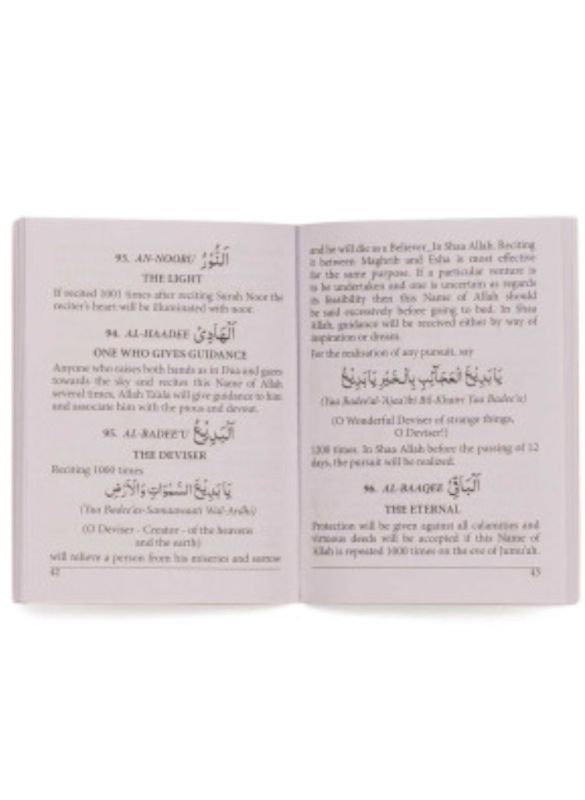 93. AN-NOORU اَلنُّوْرُ
THE LIGHT
If recited 1001 times after reciting Surah Noor the
reciter's heart will be illuminated with noor.
94. AL-HAADEE اَلْهَادِىْ
ONE WHO GIVES GUIDANCE
Anyone who raises both hands as in Dua and gazes
towards the sky and recites this Name of Allah
several times, Allah Ta'ala will give guidance to him
and associate him with the pious and devout.
95. AL-BADEE'U اَلْبَدِيْعُ
THE DEVISER
Reciting 1000 times
يَا بَدِيْعَ السَّمٰوٰتِ وَالْاَرْضِ
(Yaa Badee'as-Samaawaati Wal-Ardhi)
(O Deviser - Creator - of the heavens
and the earth)
will relieve a person from his miseries and sorrow
42
and he will die as a Believer, In Shaa Allah. Reciting
it between Maghrib and Esha is most effective
for the same purpose. If a particular venture is
to be undertaken and one is uncertain as regards
its feasibility then this Name of Allah should
be said excessively before going to bed. In Shaa
Allah, guidance will be received either by way of
inspiration or dream.
For the realisation of any pursuit, say
يَا بَدِيْعَ الْعَجَآئِبِ بِالْخَيْرِ يَا بَدِيْعُ
(Yaa Badee'al-'Ajaa'ibi Bil-Khairi Yaa Badee'u)
(O Wonderful Deviser of strange things,
O Deviser!)
1200 times. In Shaa Allah before the passing of 12
days, the pursuit will be realized.
96. AL-BAAQEE اَلْبَاقِىْ
THE ETERNAL
Protection will be given against all calamities and
virtuous deeds will be accepted if this Name of
Allah is repeated 1000 times on the eve of Jumu'ah.
43